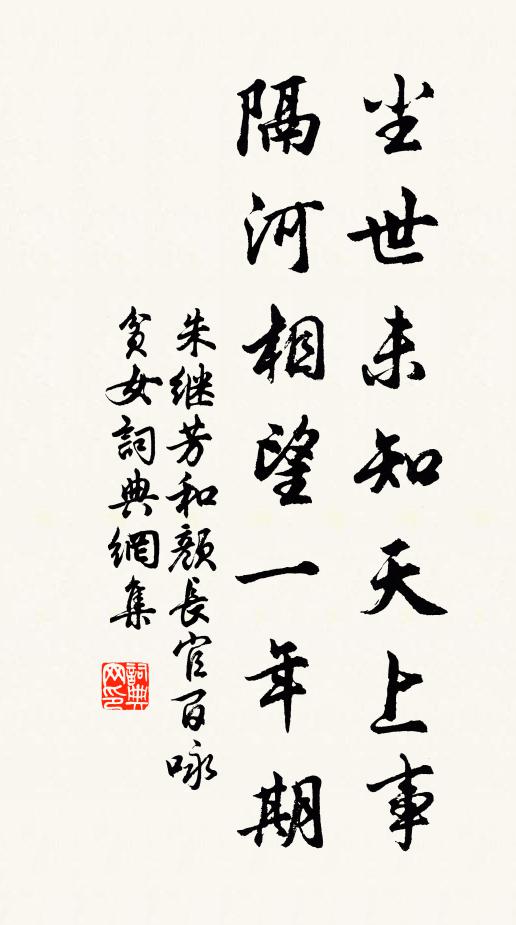 尘世未知天上事
隔河相望一年期
朱继芳和颜长官百咏
贫女詞典網集
詞典网印